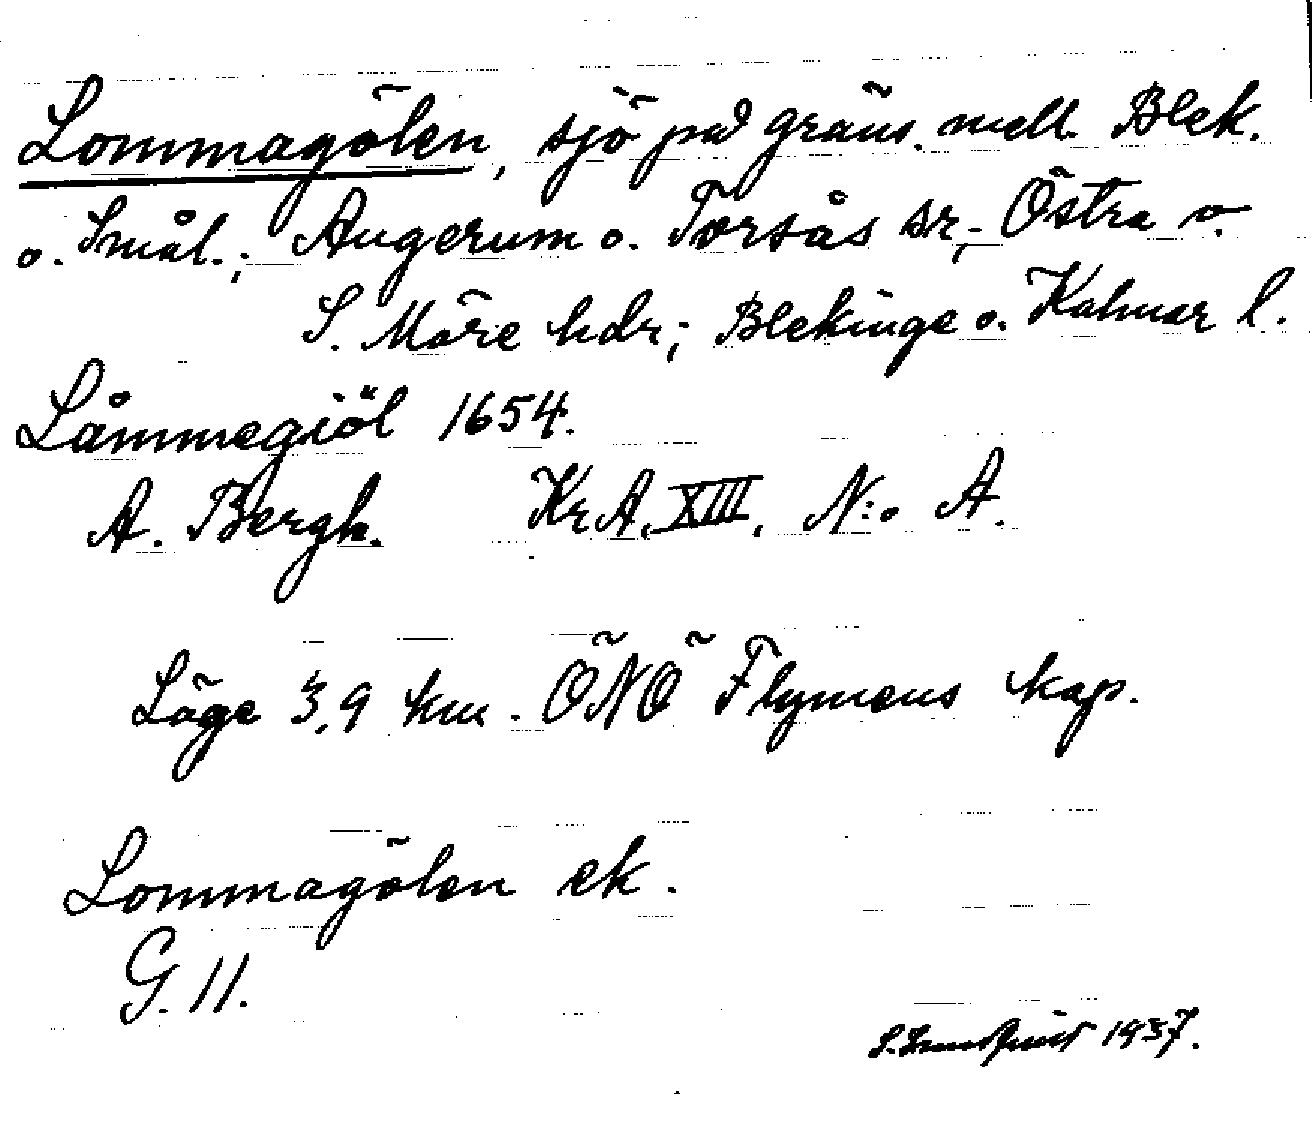 Lommagölen, sjö på gräns. mell. Blek.
o. Smål.; Augerum o. Torsås sr; Östra o.
S. Möre hdr; Blekinge o. Kalmar l.
Låmmegiöl 1654.
A. Bergh. KrA. XIII. N:o A.
Läge 3,9 km. ÖNÖ Flymens kap.
Lommagölen ek.
G. 11.
1937.